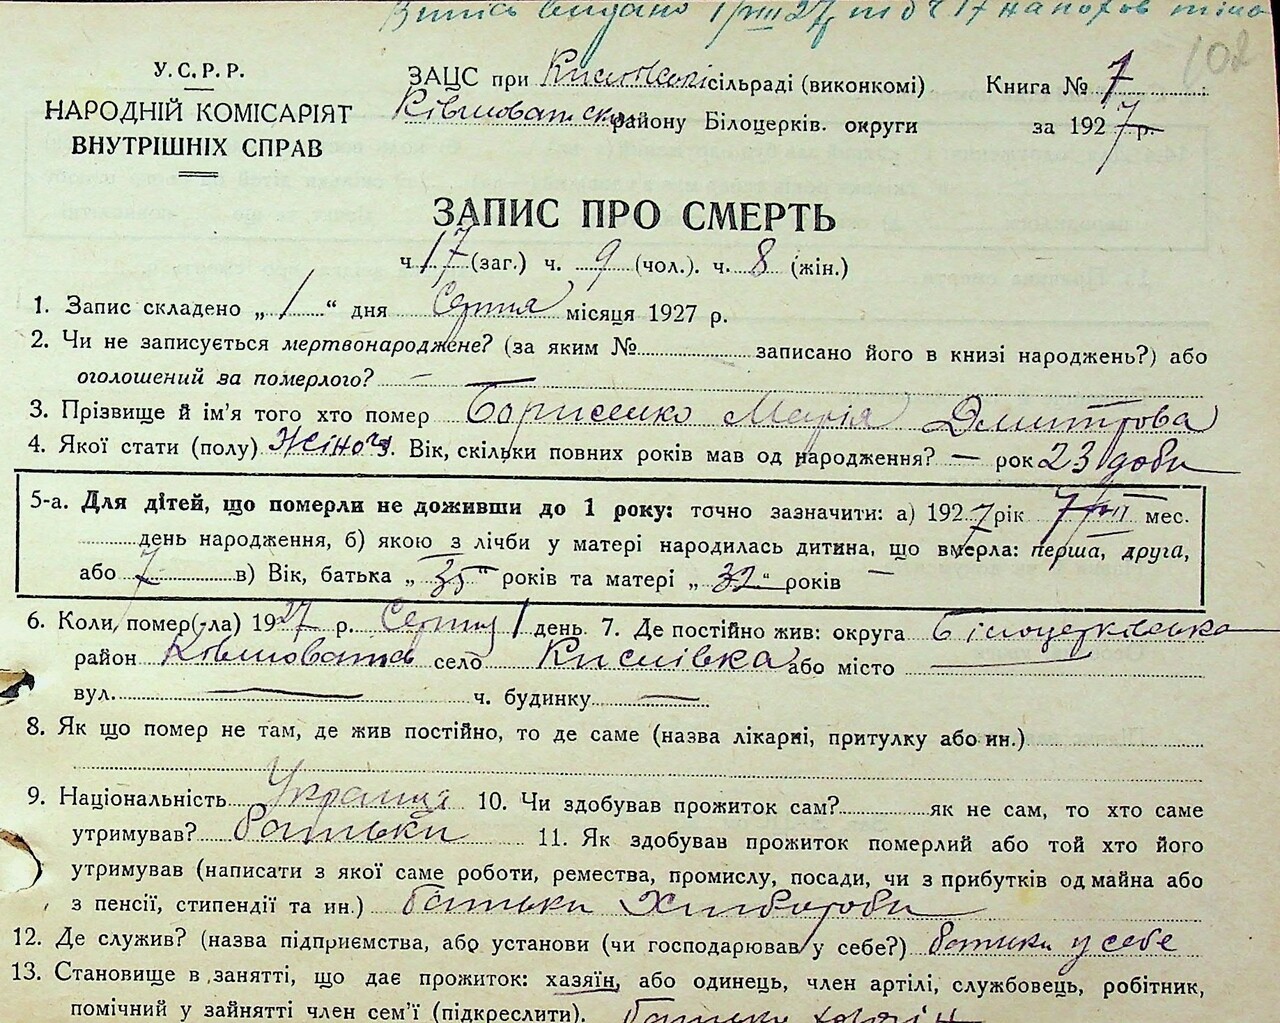 Випись видано 1/VIII 27 р. ч 17 на похов тіла
102
У.С.Р.Р.
НАРОДНІЙ КОМІСАРІЯТ
ВНУТРІШНІХ СПРАВ
ЗАЦС при Кислівській сільраді (виконкомі)
Ківшоватськ району Білоцерків. округи
Книга № 7
за 1927 р.
ЗАПИС ПРО СМЕРТЬ
ч. 17 (заг.) ч. 9 (чол.). ч. 8 (жін.)
1. Запис складено „ 1 “ дня Серпня місяця 1927 р.
2. Чи не записується мертвонароджене? (за яким № записано його в книзі народжень?) або
оголошений за померлого? —
3. Прізвище й ім'я того хто помер Борисенко Марія Дмитрова
4. Якої стати (полу) Жіноч. Вік, скільки повних років мав од народження? — рок 23 доби
5-а. Для дітей, що померли не доживши до 1 року: точно зазначити: а) 1927 рік 7/VII мес.
день народження, б) якою з лічби у матері народилась дитина, що вмерла: перша, друга,
або 7 в) Вік, батька „ 35 “ років та матері „ 32 “ років —
6. Коли помер(-ла) 1927 р. Серпня 1 день. 7. Де постійно жив: округа Білоцерківська
район Ківшовата село Кислівка або місто —
вул. — ч. будинку —
8. Як що помер не там, де жив постійно, то де саме (назва лікарні, притулку або ин.)
9. Національність Україн 10. Чи здобував прожиток сам? як не сам, то хто саме
утримував? батьки 11. Як здобував прожиток померлий або той хто його
утримував (написати з якої саме роботи, ремества, промислу, посади, чи з прибутків од майна або
з пенсії, стипендії та ин.) батьки Хлібороби
12. Де служив? (назва підприємства, або установи (чи господарював у себе?) батьки у себе
13. Становище в занятті, що дає прожиток: хазяїн, або одинець, член артілі, службовець, робітник,
помічний у зайнятті член сем'ї (підкреслити). батьки хазяїн